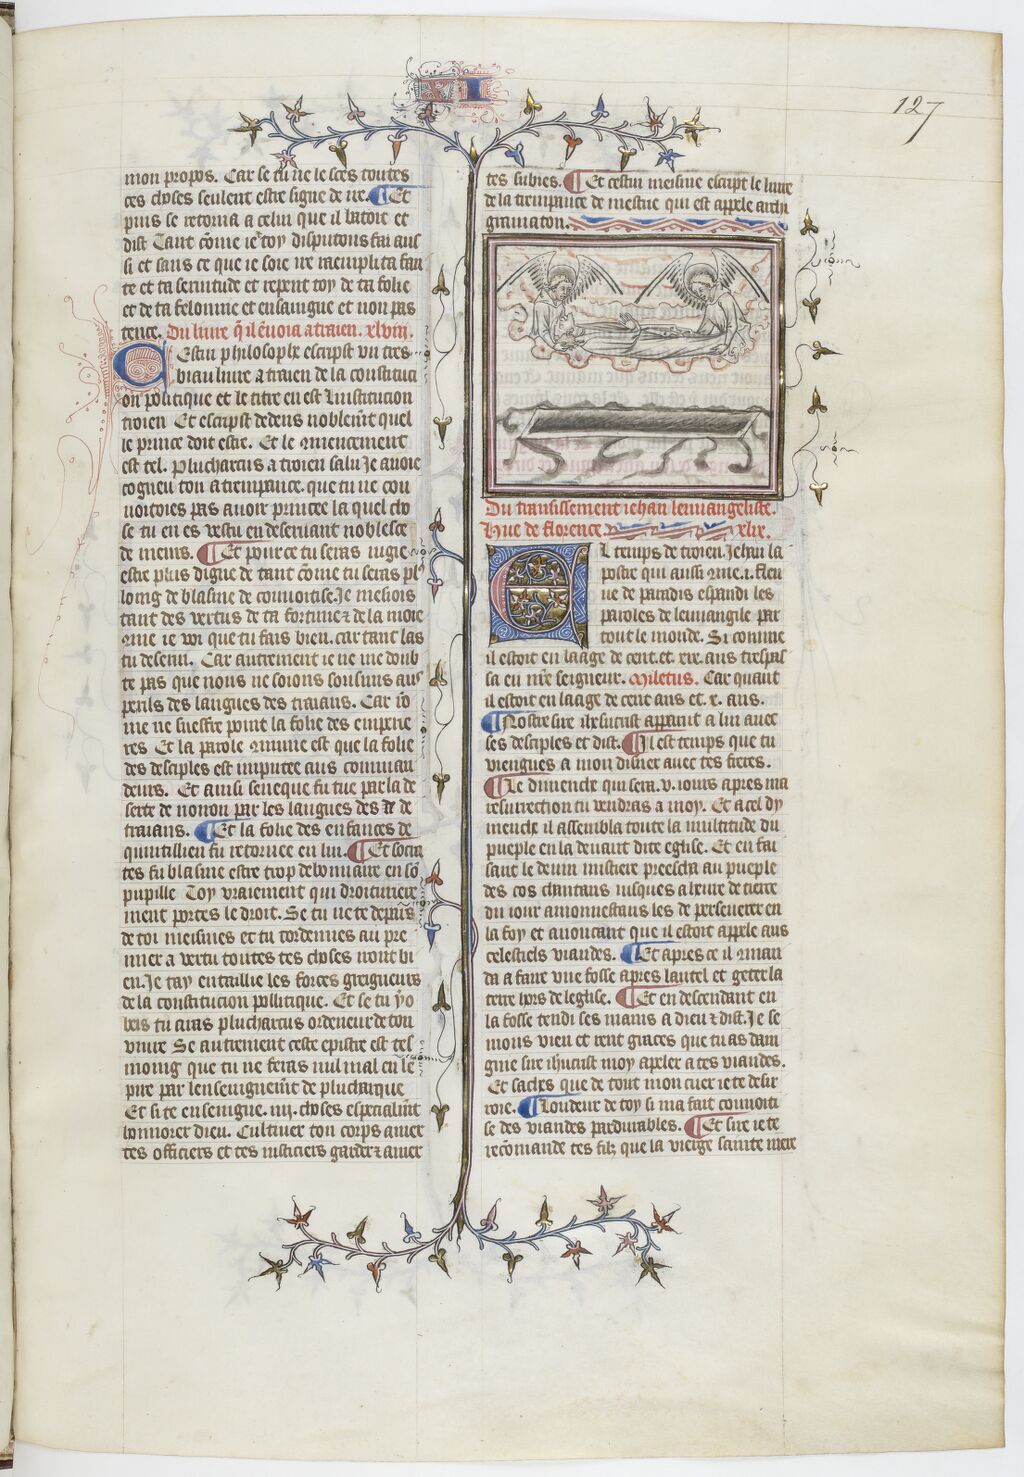 XI
127
mon propos. Car se tu ne le sces toutes
ces choses seulent estre signe de ire. Et
puis se retorna a celui que il batoit et
dist Tant cõme ie toy disputons fai aus
si et sans ce que ie soie ire
te et ta seruitude et repent toy de ta folie
et de ta felonnie et ensaingne et non pas
tence. Du liure q̃ il ẽuoia a traien. xlviii.
Cestui philosophe escript vn tres
biau liure a traien de la constituci
on politique et le titre en est Linstitucion
troien Et escript dedens noblemẽt quel
le prince doit estre. Et le
est tel. Plutharcus a troien salu Je auoie
cogneu ton atrempance. que tu ne cou
uoitoies pas auoir princee la quel cho
se tu en es vestu en deseruant noblesce
de meurs. Et pource tu seras iugie
estre plus digne de tant cõme tu seras pl⁹
loing de blasme de conuoitise. Je mesiois
tant des vertus de ta fortune ⁊ de la moie
se ie voi que tu fais bien. car tant las
tu deserui. Car autrement ie ne me doub
te pas que nous ne soions sousmis aus
perils des langues des traians. Car rõ
me ne sueffre point la folie des emperie
res Et la parole cõmune est que la folie
des desciples est imputee aus comman
deurs. Et ainsi seneque fu tue par la de
serte de noiron par les langues des de
traians. Et la folie des enfances de
quintillien fu retornee en lui. Et socra
tes fu blasme estre trop debonnaire en sõ
pupille Toy vraiement qui droiturere
ment portes le droit. Se tu ne te depars
de toi meismes et tu tordennes au pre
mier a vertu toutes tes choses iront bi
en. Je tay entaillie les forces greigneurs
de la constitucion pollitique. Et se tu y o
beis tu auras plutharcus ordeneur de ton
viure Se autrement ceste epistre est tes
moing que tu ne feras nul mal en le
pire par lenseignemẽt de plutharque
Et si te enseigne. iiii. choses especialmẽt
honnorer dieu. Cultiuer ton corps amer
tes officiers et tes iusticiers garder ⁊ amer
tes subies. Et cestui meisme escript le liure
de la trempance de mestrie qui est appele archi
gramaton.
Du transissement iehan leuuangeliste.
Hue de florence. xlix.
El temps de troien. Jehan la
postre qui aussi cõme .i. fleu
ue de paradis espandi les
paroles de leuuangile par
tout le monde. Si comme
il estoit en laage de cent. et. xix. ans trespas
sa en nr̃e seigneur. Miletus. Car quant
il estoit en laage de cent ans et. x. ans.
Nostre sire ihesucrist apparut a lui auec
ses desciples et dist. Il est temps que tu
viengnes a mon disner auec tes freres.
Le dimenche qui sera. v. iours apres ma
resurrection tu vendras a moy. Et a cel dy
menche il assembla toute la multitude du
pueple en la deuant dite eglise. Et en fai
sant le deuin mistiere preescha au pueple
des cos chantans iusques a heure de tierce
du iour amonnestans les de perseuerer en
la foy et anoncant que il estoit appele aus
celestiels viandes. Et apres ce il man
da a faire vne fosse apres lautel et geter la
terre hors de leglise. Et en descendant en
la fosse tendi ses mains a dieu ⁊ dist. Je se
mons vien et rent graces que tu as dain
gne sire ihũcrist moy apeler a tes viandes.
Et saches que de tout mon cuer ie te desir
roie. Loudeur de toy si ma fait conuoiti
se des viandes pardurables. Et sire ie te
recõmande tes filz que la vierge sainte mere